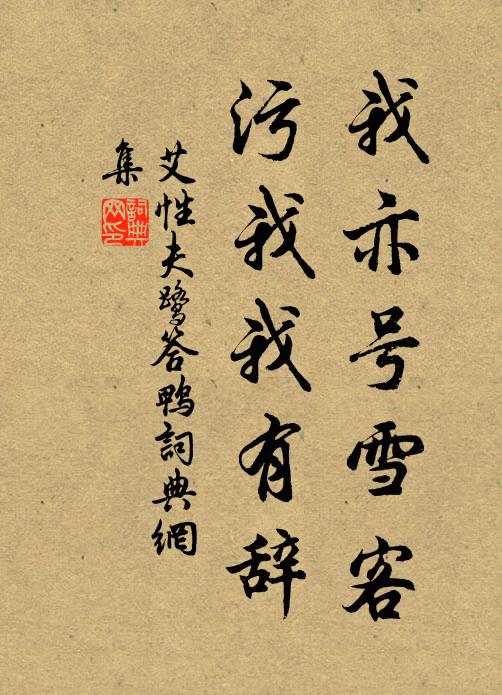 我亦号雪客
污我我有辞
艾性夫鹭答鸭詞典網
集
詞典
网印